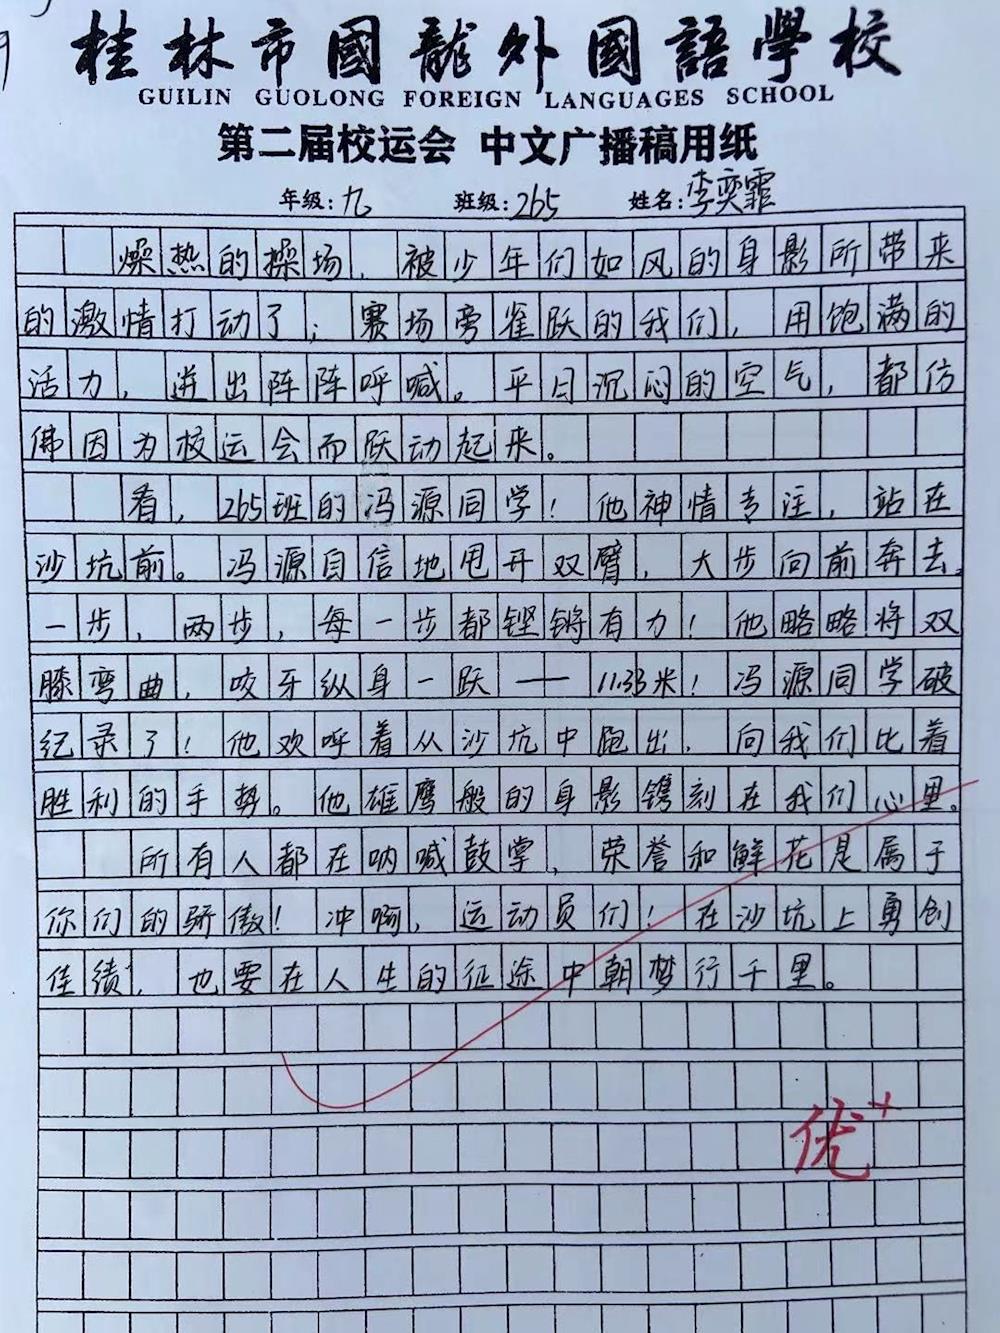 桂林市國龍外國語學校
GUILIN GUOLONG FOREIGN LANGUAGES SCHOOL
第二届校运会 中文广播稿用纸
年级：九 班级：265 姓名：李奕霏
燥热的操场，被少年们如风的身影所带来
的激情打动了；赛场旁雀跃的我们，用饱满的
活力，迸出阵阵呼喊。平日沉闷的空气，都仿
佛因为校运会而跃动起来。
看，265班的冯源同学！他神情专注，站在
沙坑前。冯源自信地甩开双臂，大步向前奔去。
一步，两步，每一步都铿锵有力！他略略将双
膝弯曲，咬牙纵身一跃——11.38米！冯源同学破
纪录了！他欢呼着从沙坑中跑出，向我们比着
胜利的手势。他雄鹰般的身影镌刻在我们心里。
所有人都在呐喊鼓掌，荣誉和鲜花是属于
你们的骄傲！冲啊，运动员们！在沙坑上勇创
佳绩，也要在人生的征途中朝梦行千里。
优+